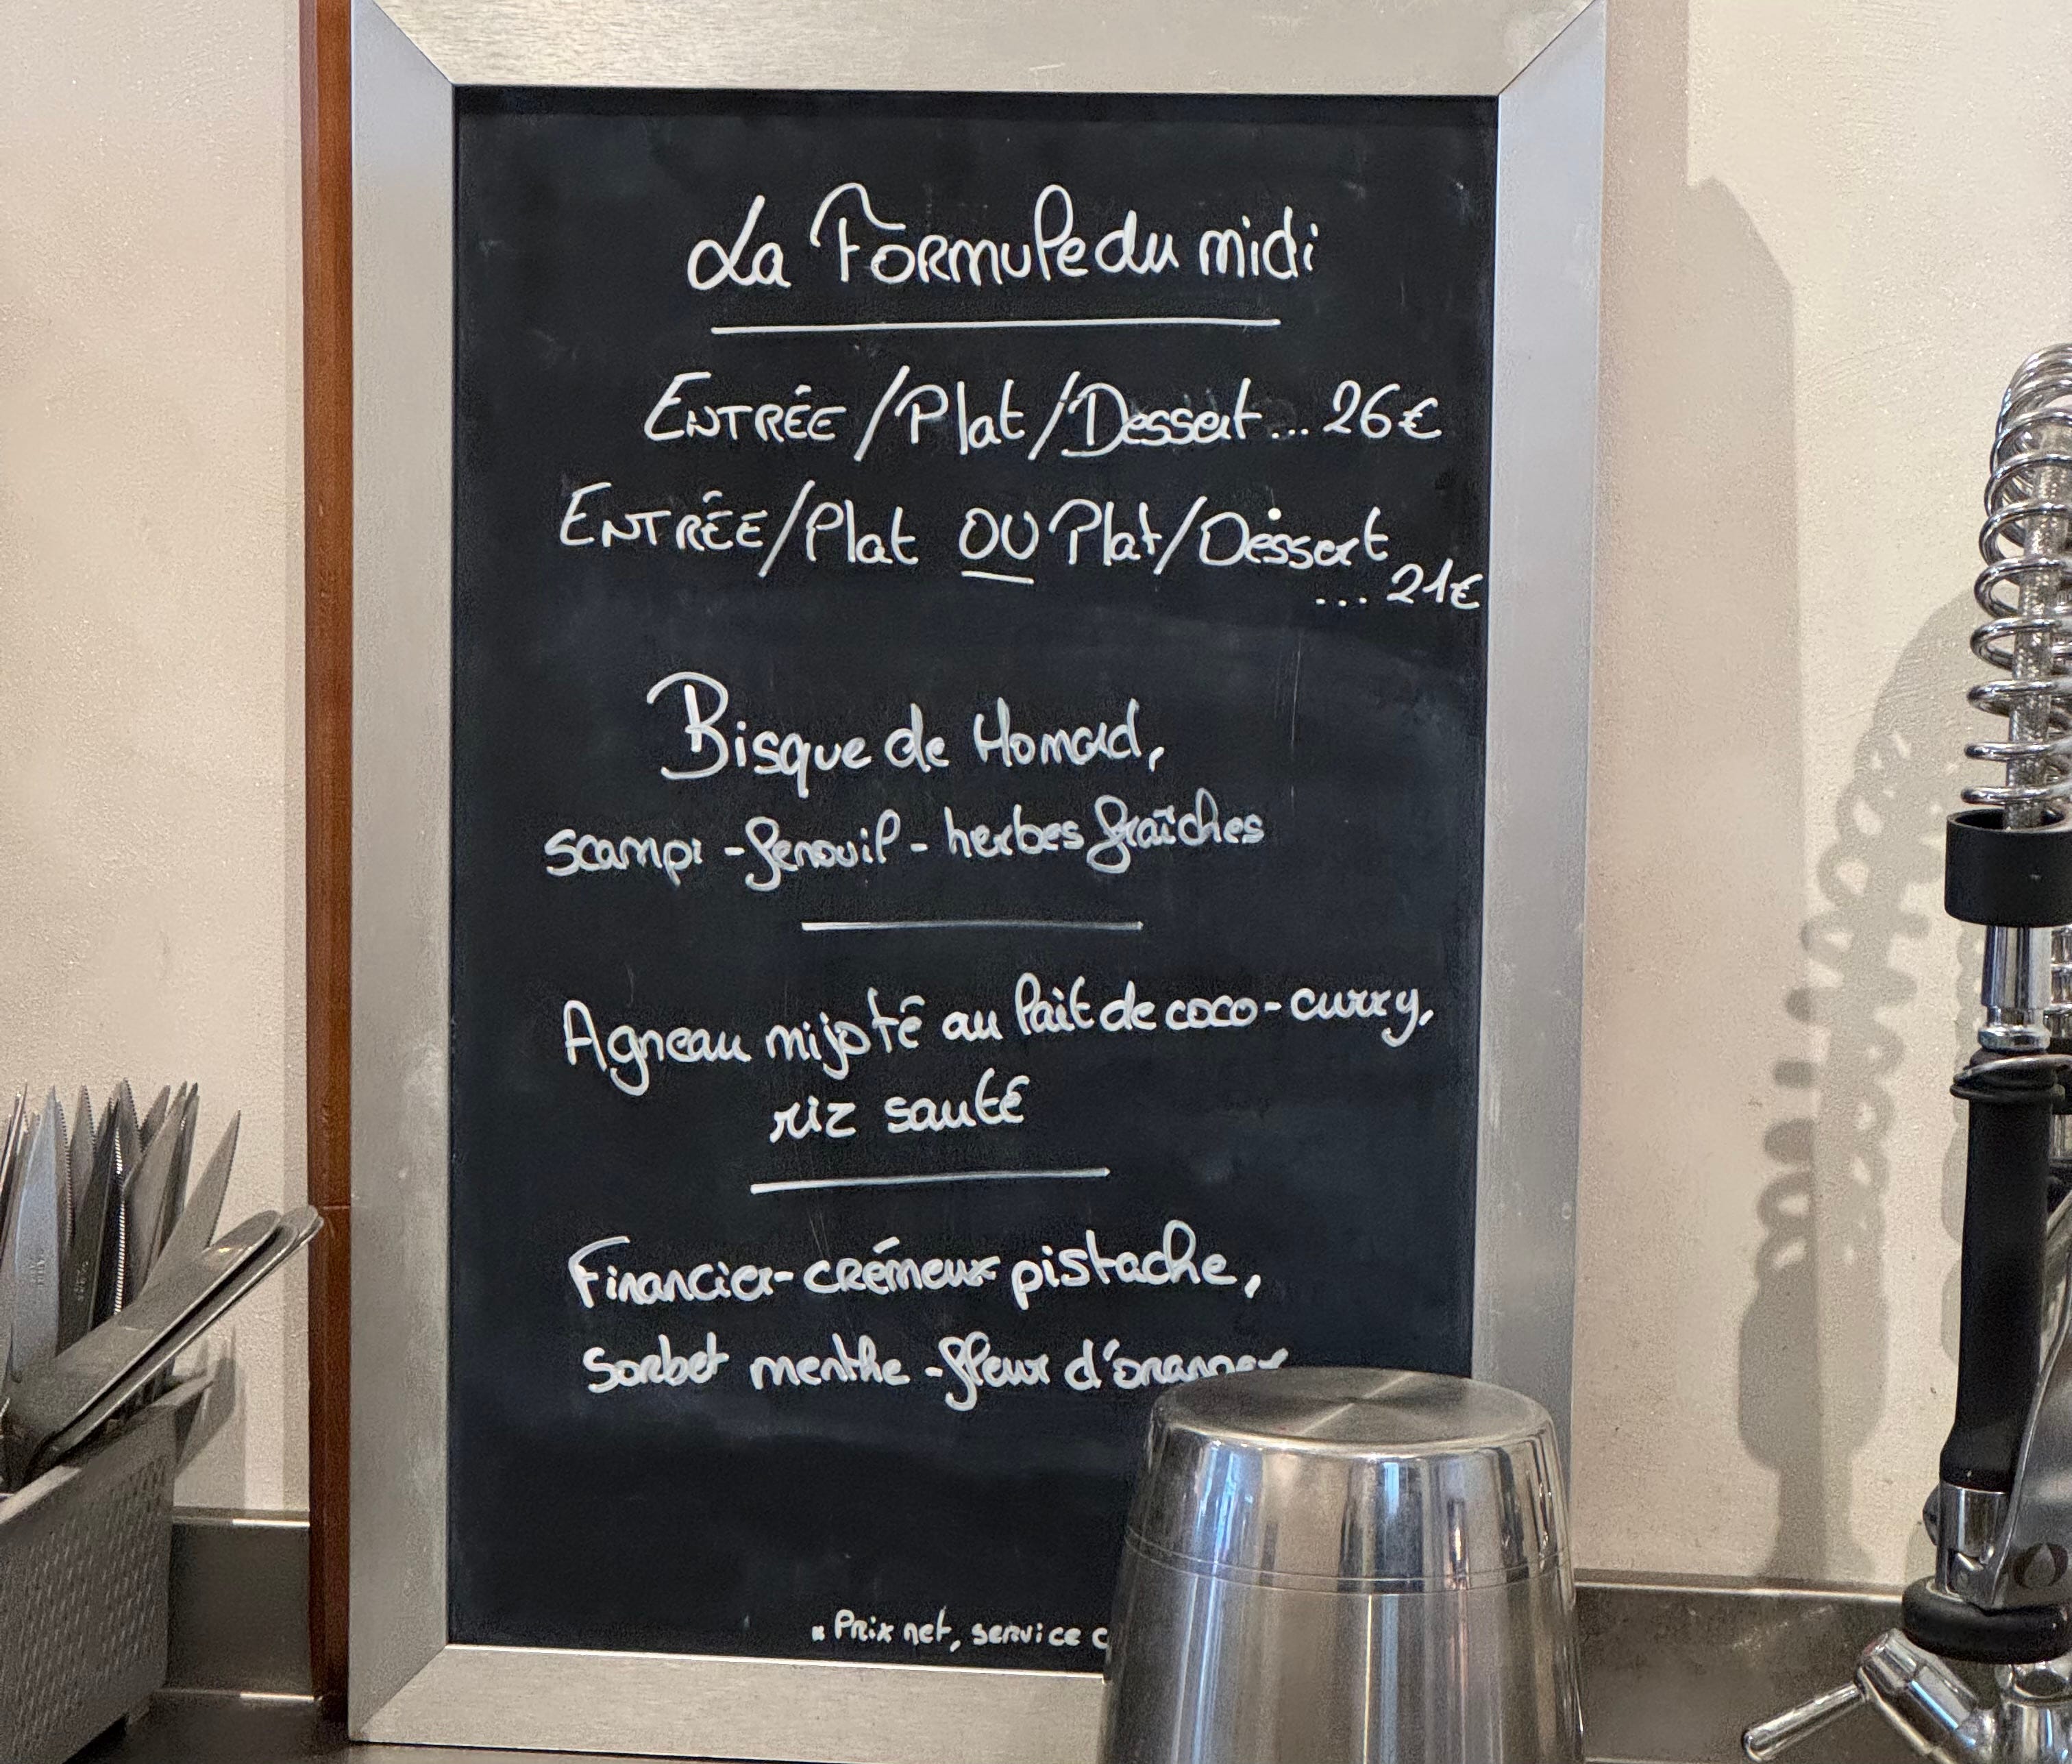 La Formule du midi
ENTRÉE/Plat/Dessert... 26€
ENTRÉE/Plat OU Plat/Dessert
... 21€
Bisque de Homard,
scampi - fenouil - herbes fraîches
Agneau mijoté au lait de coco - curry,
riz sauté
Financier - crémeux pistache,
Sorbet menthe - fleur d'oranger
* Prix net, service